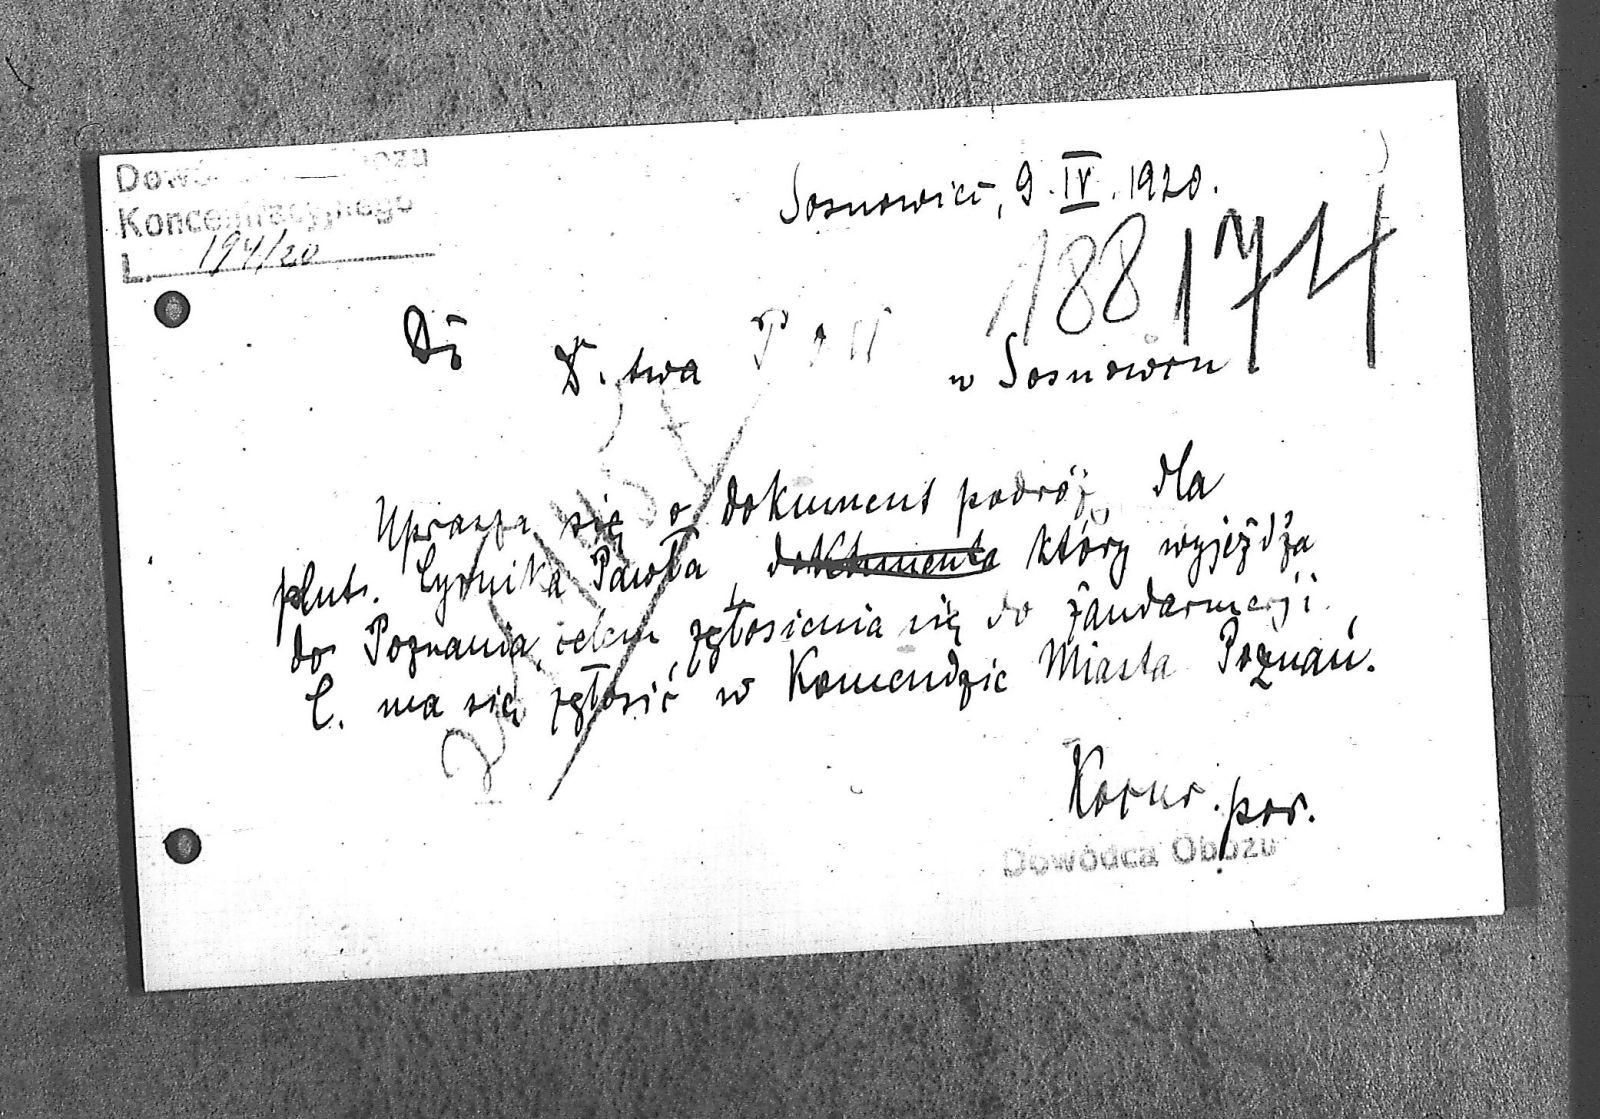 Dowó obozu
Koncentracyjnego
L. 194/20
Sosnowiec, 9.IV.1920.
188174
Do D-twa P
w Sosnowcu
Uprasza się o dokument podróż dla
plut. Cyrnika Pawła, dokumenta który wyjeżdża
do Poznania, celem zgłosienia się do żandarmerji.
C. ma się zgłosić w Komendzie Miasta Poznań.
por.
Dowódca Obozu